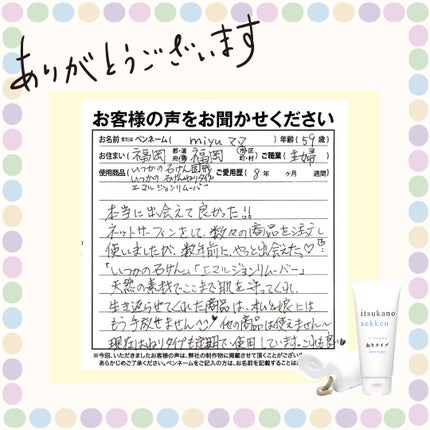 ありがとうございます
お客様の声をお聞かせください
お名前またはペンネーム( miyuママ )年齢( 59 歳)
お住まい( 福岡 都・道府・県 福岡 市・区町・村 )ご職業( 主婦 )
使用商品( いつかの石けん固形 いつかの石けんねりタイプ エマルジョンリムーバー )ご愛用歴( 8 年 ヶ月 週間)
本当に出会えて良かった!!
ネットサーフィンをして、数々の商品を注文し
使いましたが、数年前に、やっと出会えた♡
「いつかの石けん」「エマルジョンリムーバー」
天然の素材でここまで肌を守ってくれ、
生き返らせてくれた商品は、私と娘には
もう手放せません^^♡他の商品は使えません〜
現在はねりタイプも定期で、使用しています。これも
※今回、いただきましたお客様の声は、弊社の制作物に掲載させて頂くことがございます
あらかじめご了承ください。ペンネームをご記入の方は、お名前を記載することは
itsukano
sekken
ねりタイプ